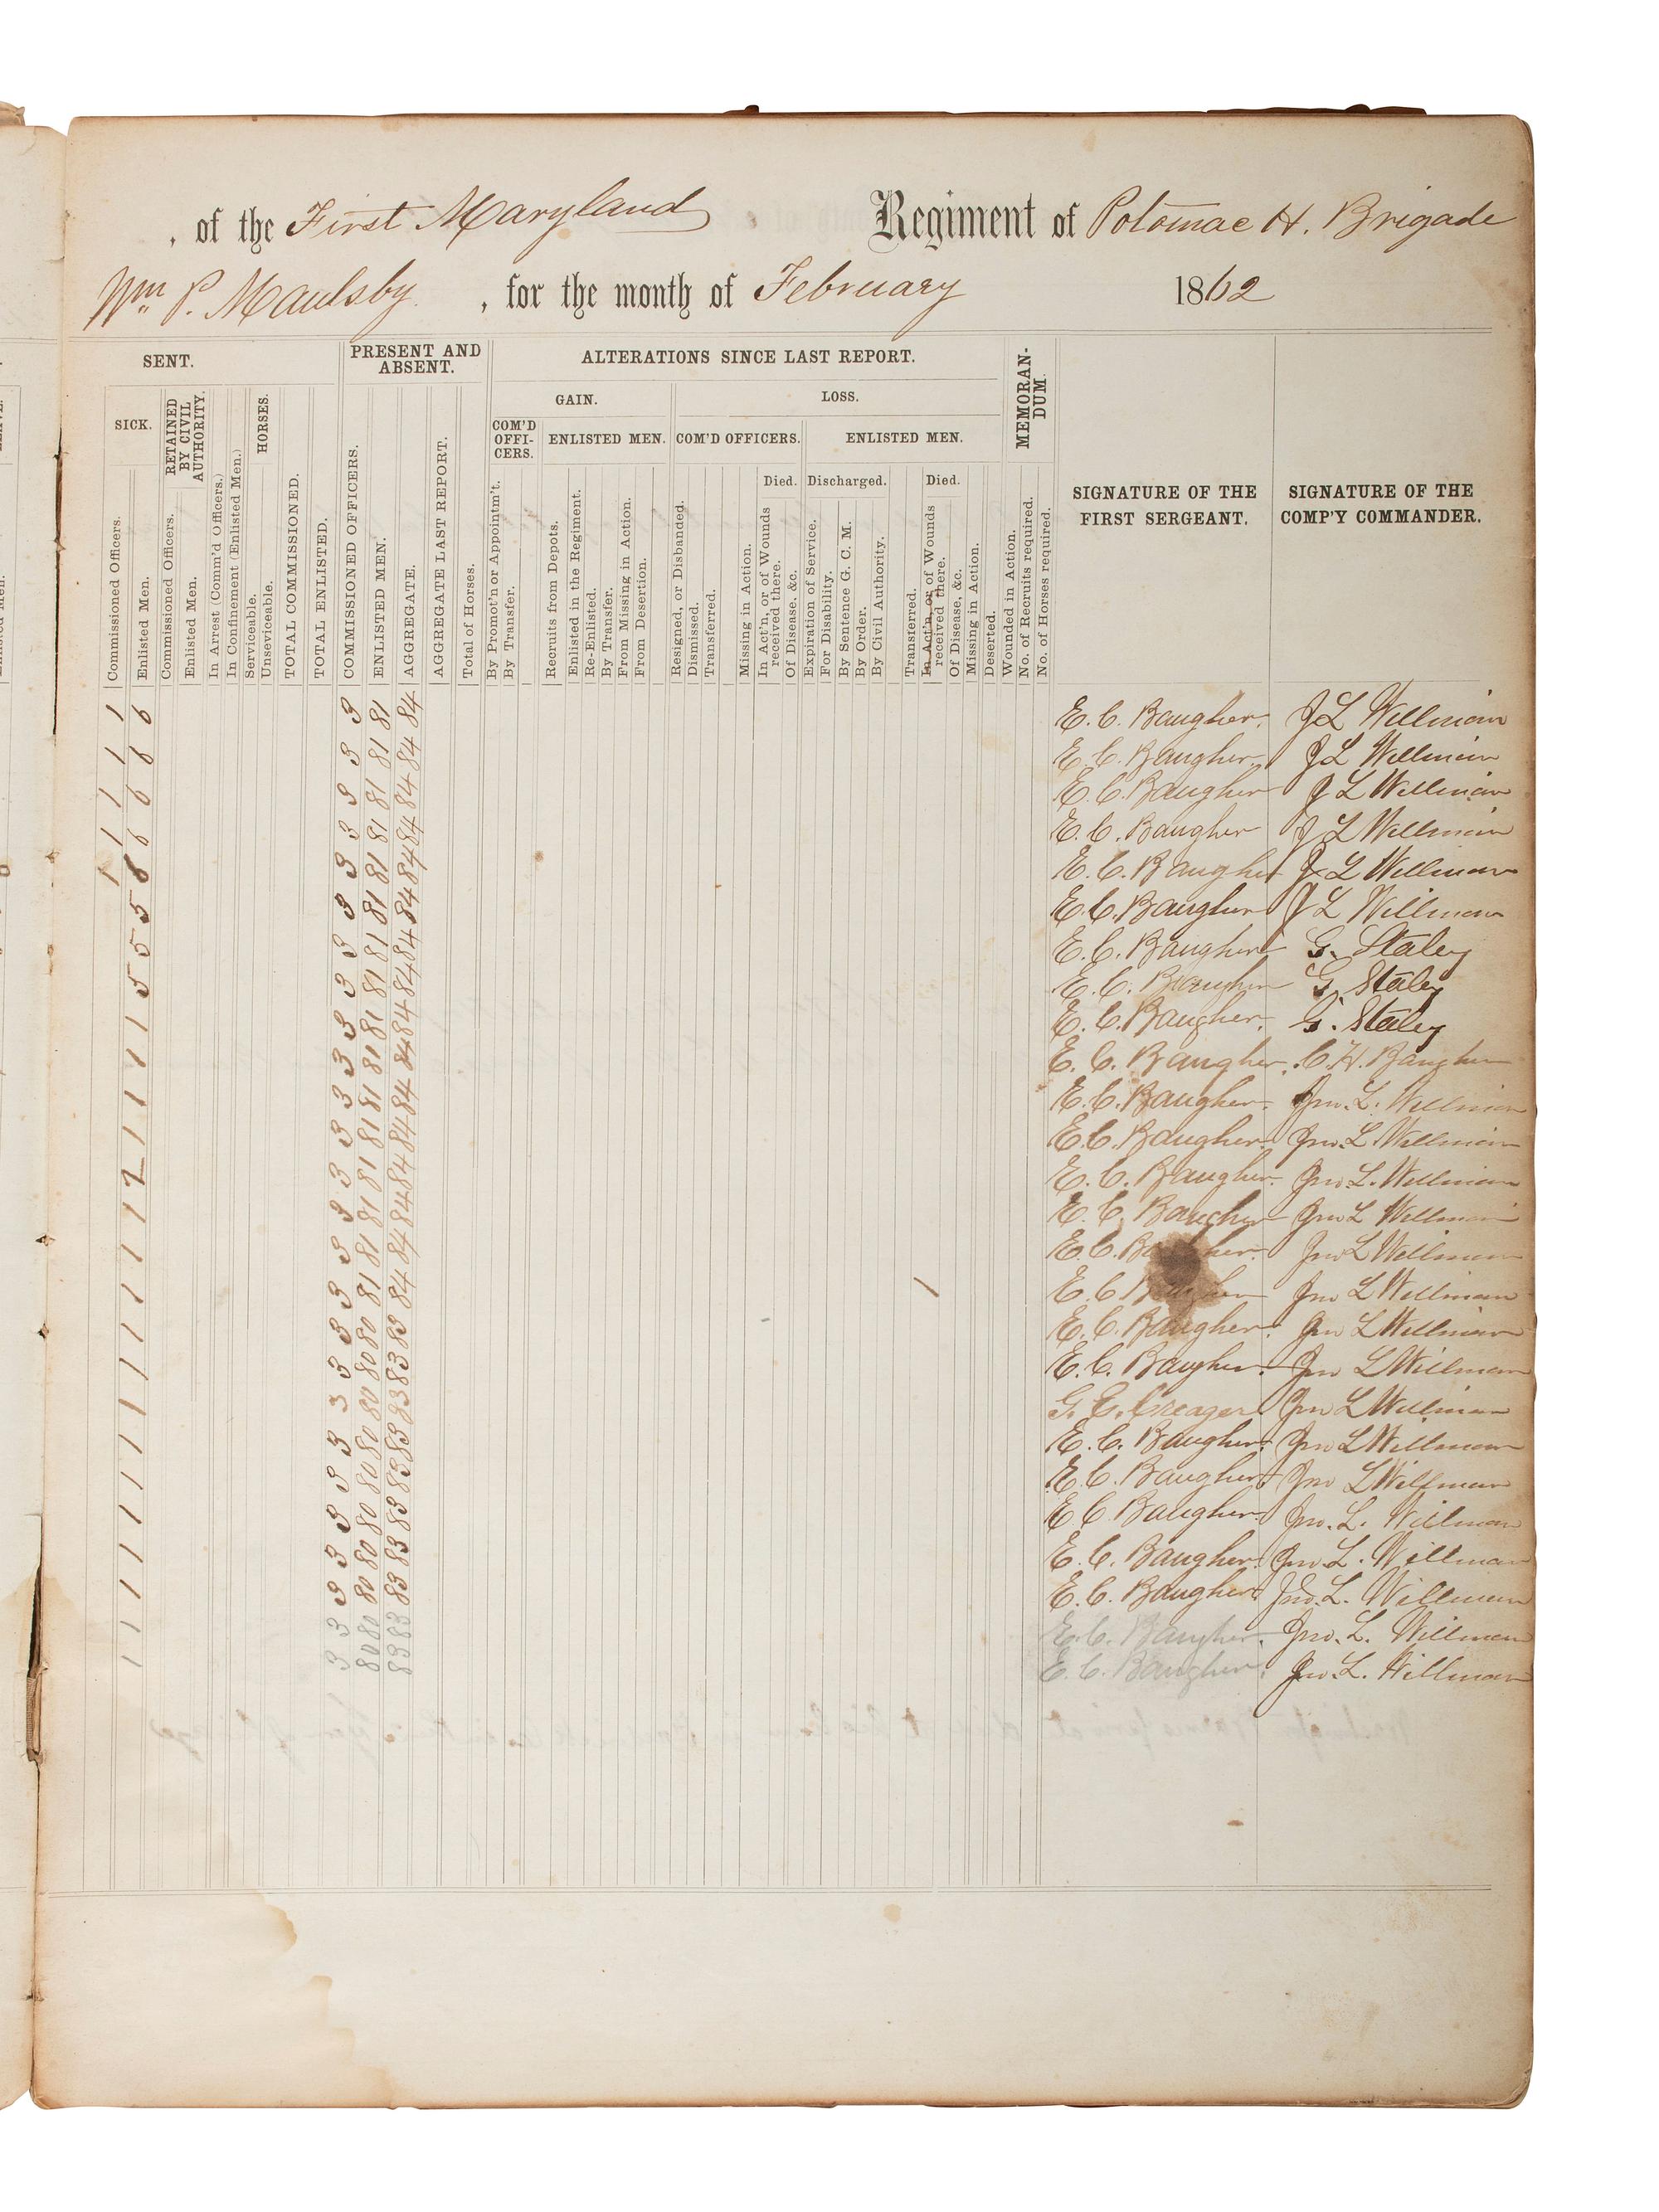 , of the First Maryland Regiment of Potomac H. Brigade
Wm P. Maulsby , for the month of February 1862
SENT.
PRESENT AND ABSENT.
ALTERATIONS SINCE LAST REPORT.
MEMORAN-DUM.
SIGNATURE OF THE FIRST SERGEANT.
SIGNATURE OF THE COMP'Y COMMANDER.
GAIN.
LOSS.
SICK.
RETAINED BY CIVIL AUTHORITY.
HORSES.
COM'D OFFI-CERS.
ENLISTED MEN.
COM'D OFFICERS.
ENLISTED MEN.
Died.
Discharged.
Died.
Commissioned Officers.
Enlisted Men.
Commissioned Officers.
Enlisted Men.
In Arrest (Comm'd Officers.)
In Confinement (Enlisted Men.)
Serviceable.
Unserviceable.
TOTAL COMMISSIONED.
TOTAL ENLISTED.
COMMISSIONED OFFICERS.
ENLISTED MEN.
AGGREGATE.
AGGREGATE LAST REPORT.
Total of Horses.
By Promot'n or Appointm't.
By Transfer.
Recruits from Depots.
Enlisted in the Regiment.
Re-Enlisted.
By Transfer.
From Missing in Action.
From Desertion.
Resigned, or Disbanded.
Dismissed.
Transferred.
Missing in Action.
In Act'n, or of Wounds received there.
Of Disease, &c.
Expiration of Service.
For Disability.
By Sentence G. C. M.
By Order.
By Civil Authority.
Transferred.
In Act'n, or of Wounds received there.
Of Disease, &c.
Missing in Action.
Deserted.
Wounded in Action.
No. of Recruits required.
No. of Horses required.
1 6 3 81 84 E. C. Baugher. J L Willman
1 6 3 81 84 E. C. Baugher. J L Willman
1 6 3 81 84 E. C. Baugher J L Willman
1 6 3 81 84 E. C. Baugher J L Willman
1 3 81 84 E. C. Baugher J L Willman
5 3 81 84 E. C. Baugher J L Willman
5 3 81 84 E. C. Baugher G. Staley
5 3 81 84 E. C. Baugher G. Staley
1 3 81 84 E. C. Baugher. G. Staley
1 3 81 84 E. C. Baugher. C. H. Baugher
1 3 81 84 E. C. Baugher. Jno. L. Willman
1 3 81 84 E. C. Baugher. Jno. L Willman
2 3 81 84 E. C. Baugher. Jno. L. Willman
1 3 81 84 E. C. Baugher Jno L Willman
1 3 81 84 E. C. Baugher. Jno L Willman
1 3 81 84 1 E. C. Baugher Jno L Willman
1 3 80 83 E. C. Baugher. Jno L Willman
1 3 80 83 E. C. Baugher. Jno L Willman
1 3 80 83 G. E. Creager. Jno L Willman
1 3 80 83 E. C. Baugher. Jno L Willman
1 3 80 83 E. C. Baugher Jno L Willman
1 3 80 83 E C Baugher. Jno. L. Willman
1 3 80 83 E. C. Baugher. Jno. L. Willman
1 3 80 83 E. C. Baugher. Jno. L. Willman
1 3 80 83 E. C. Baugher. Jno. L. Willman
1 3 80 83 E. C. Baugher. Jno. L. Willman